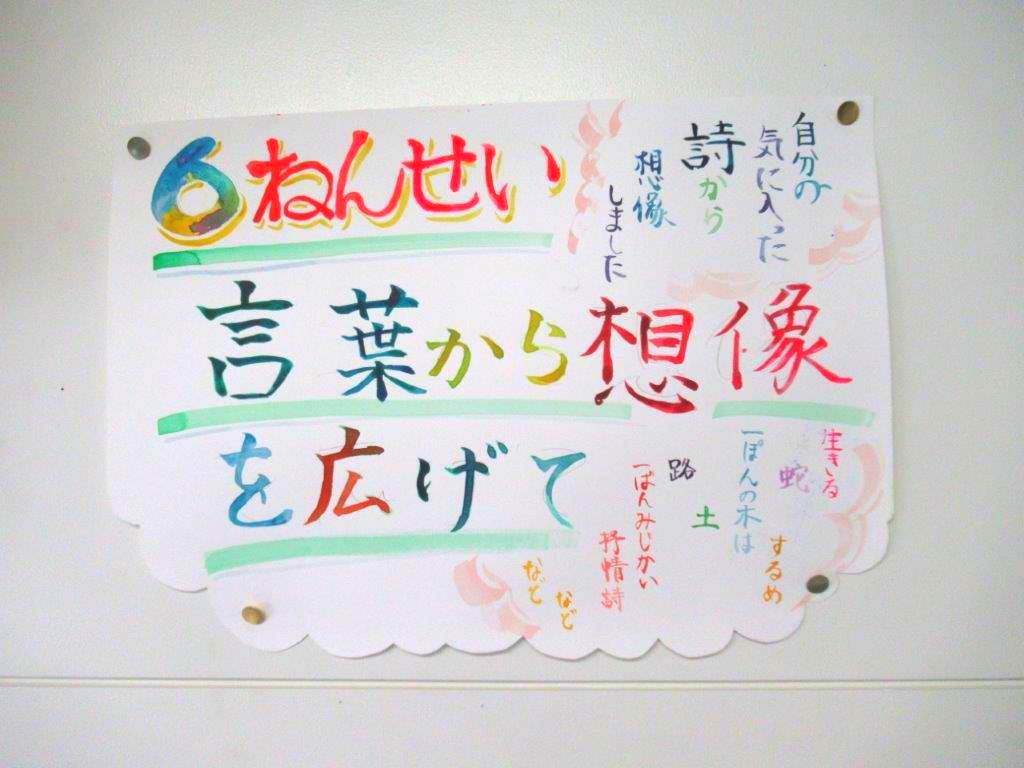 6ねんせい
言葉から想像
を広げて
自分の
気に入った
詩から
想像
しました
生きる
蛇
するめ
一ぽんの木は
土
路
一ばんみじかい
抒情詩
など
など